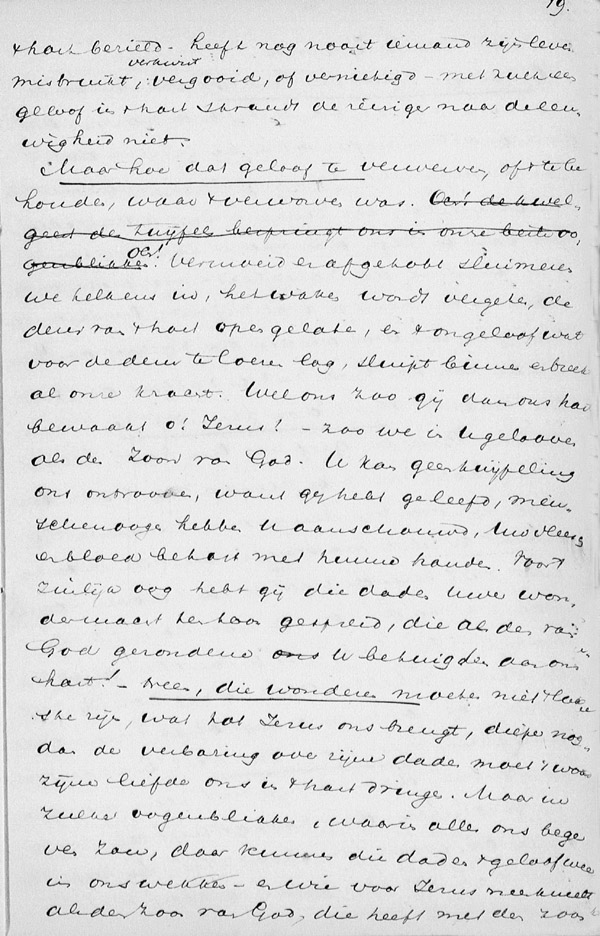 19.
't hart bezield - heeft nog nooit iemand zijn leven
verkwist
misbruikt, vergooid, of vernietigd - met zulk een
geloof in 't hart strandt de reiziger naar de eeu-
wigheid niet.
Maar hoe dat geloof te verwerven, of 't te be
houden, waar 't verworven was.
geest des twijfels bespringt ons in onze beste oo-
genblikken! Vermoeid en afgetobt sluimeren
we telkens in, het waken wordt vergeten, de
deur van 't hart open gelaten, en 't ongeloof wat
voor de deur te loeren lag, sluipt binnen en breekt
al onze kracht. Wel ons zoo gij dan ons hart
bewaart o! Jezus! - zoo we in U gelooven
als den Zoon van God. U kan geen twijfeling
ons ontrooven, want gij hebt geleefd, men-
schenoogen hebben U aanschouwd, Uw vleesch
en bloed betast met hunne handen. Voor 't
zinlijk oog hebt gij die daden Uwer won-
dermacht ten toon gespreid, die als den van
God gezondene ons U betuigden aan ons
hart! - Neen, die wonderen moeten niet 't laat
ste zijn, wat tot Jezus ons brengt, dieper nog
dan de verbazing over zijne daden moet 't woord
zijner liefde ons in 't hart dringen. Maar in
zulke oogenblikken, waarin alles ons bege
ven zou, daar kunnen die daden 't geloof weer
in ons wekken - en wie voor Jezus neerknielt
als den Zoon van God, die heeft met den Zoon